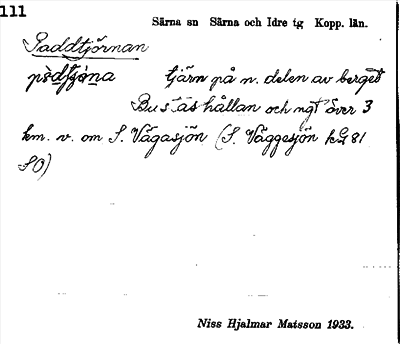 111
Särna sn Särna och Idre tg Kopp. län.
Paddtjörnan
tjärn på n. delen av berget
Bustäshållan och ngt över 3
km. v. om S. Vågasjön (S. Våggesjön kG 81
SO)
Niss Hjalmar Matsson 1933.